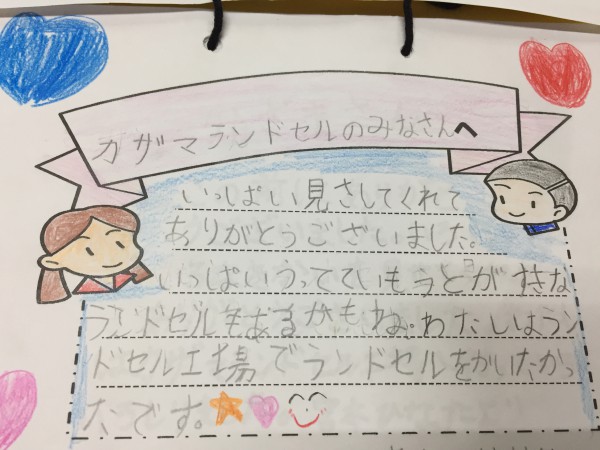 カザマランドセルのみなさんへ
いっぱい見さしてくれて
ありがとうございました。
いっぱいうっていもうとがすきな
ランドセルをあるかもね。わたしはラン
ドセル工場でランドセルをかいたかっ
たです。